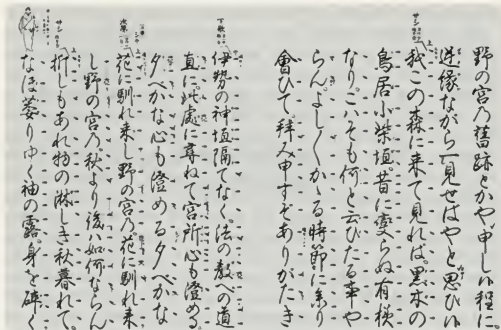 野の宮乃舊跡とかや申しし程に
逆縁ながら一見せばやと思ひし
サシ上
我この森に来て見れば。黒木の
鳥居小柴垣。昔に變らぬ有様
なり。こハそも何と云ひたる事や
らん。よしよしかゝる時節に来り
會ひて。拜み申すぞありがたき
下歌
伊勢の神垣隔てなく。法の教への道
直に。此處に尋ねて宮所心も澄める
夕べかな心も澄める夕べかな
次第
花に馴れ来し野の宮乃。花に馴れ来
し野の宮乃。秋より後ハ如何ならん
サシ上
折しもあれ物の淋しき秋暮れて。
なほ萎りゆく袖の露。身を碎く